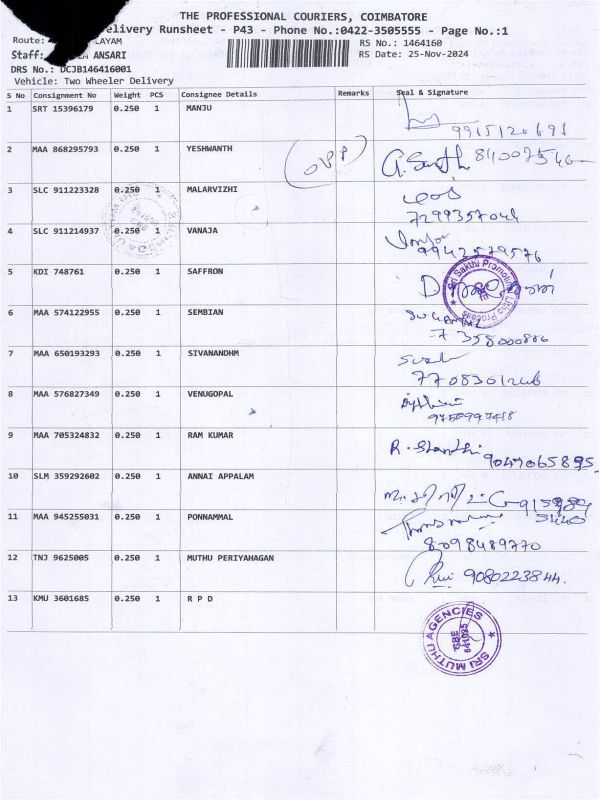 THE PROFESSIONAL COURIERS, COIMBATORE
elivery Runsheet - P43 - Phone No.:0422-3505555 - Page No.:1
Route: LAYAM
RS No.: 1464160
Staff: ANSARI
RS Date: 25-Nov-2024
DRS No.: DCJB146416001
Vehicle: Two Wheeler Delivery
S No Consignment No Weight PCS Consignee Details Remarks Seal & Signature
1 SRT 15396179 0.250 1 MANJU
9915120691
2 MAA 868295793 0.250 1 YESHWANTH
3 SLC 911223328 0.250 1 MALARVIZHI
4 SLC 911214937 0.250 1 VANAJA
9942579576
5 KDI 748761 0.250 1 SAFFRON
Sri Sakthi Promoters
6 MAA 574122955 0.250 1 SEMBIAN
7358000806
7 MAA 650193293 0.250 1 SIVANANDHM
8 MAA 576827349 0.250 1 VENUGOPAL
9750997418
9 MAA 705324832 0.250 1 RAM KUMAR
R. Shanthi 9047065895
10 SLM 359292602 0.250 1 ANNAI APPALAM
11 MAA 945255031 0.250 1 PONNAMMAL
8098489770
12 TNJ 9625005 0.250 1 MUTHU PERIYAHAGAN
9080223844.
13 KMU 3601685 0.250 1 R P D
SRI MUTHU AGENCIES
CBE
641025